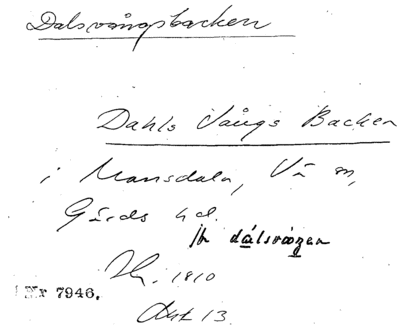 Dalsvångsbacken
Dahls Vångs Backen
i Mansdala, Vä sn,
Gärds hd.
dálsvåŋen
1810
Nr 7946.
Akt 13